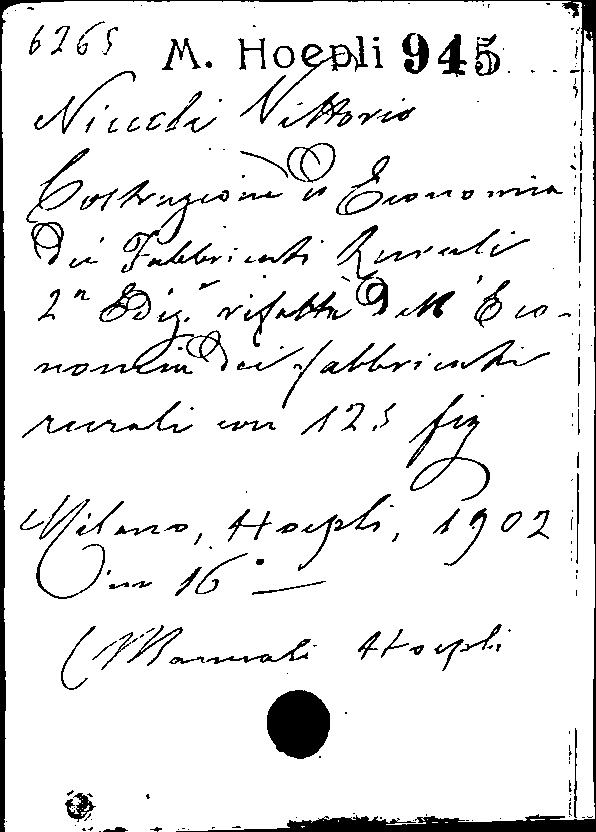 6265 M. Hoepli 945
Niccoli Vittorio
Costruzione ed Economia
dei Fabbricati Rurali
2ª Ediz.e rifatta dell'Eco-
nomia dei fabbricati
rurali con 125 fig
Milano, Hoepli, 1902
in 16° —
(Manuali Hoepli